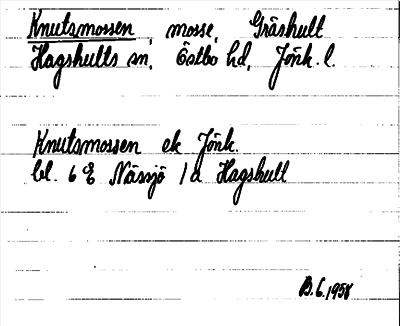 Knutsmossen, mosse, Gräshult
Hagshults sn, Östbo hd, Jönk. l.
Knutsmossen ek Jönk.
bl. 6 E Nässjö 1 d Hagshult
B.G. 1958